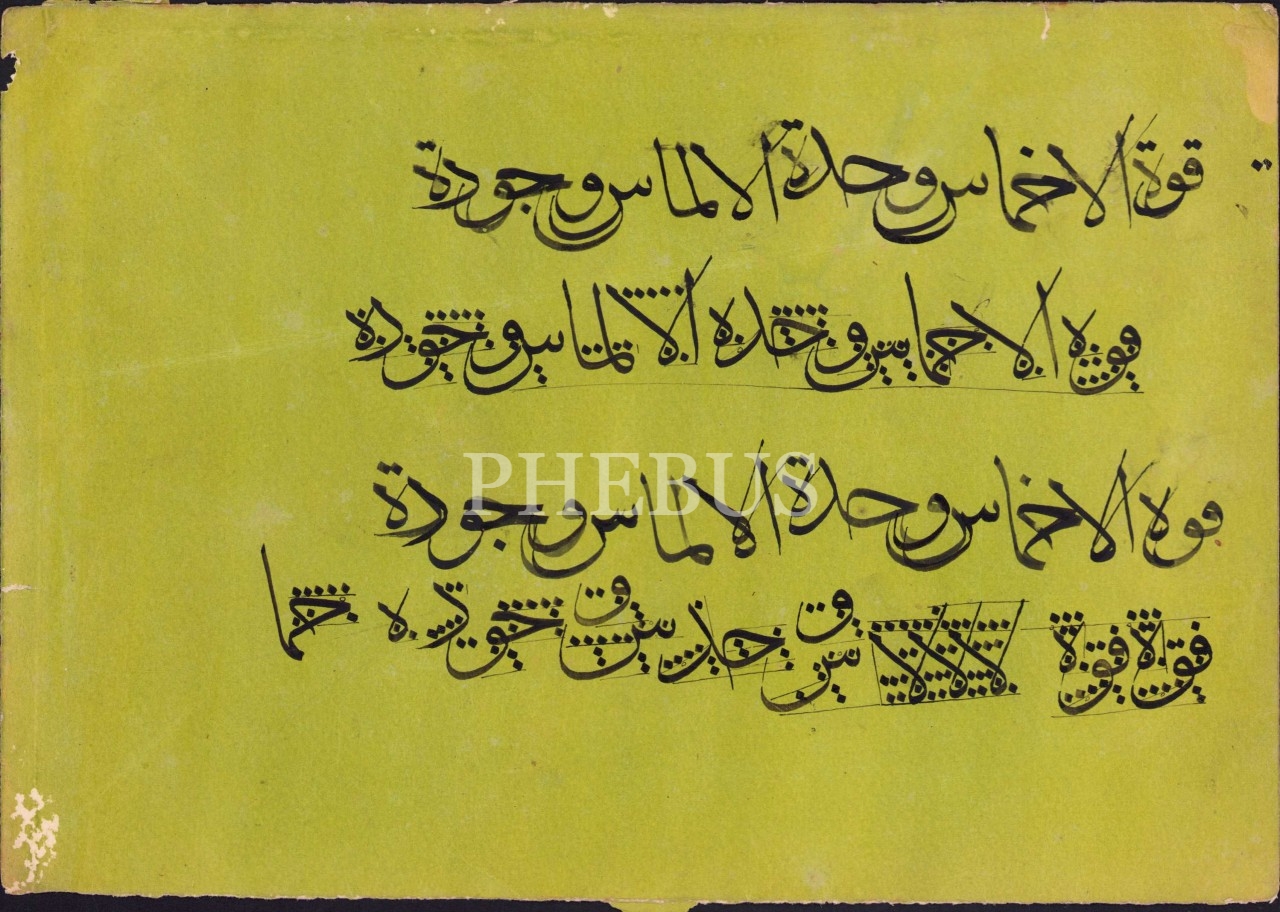 قوة الاخماس وحدة الالماس وجودة
قوة الاخماس وحده الالماس وجوده
PHEBUS
قوه الاخماس وحدة الالماس وجودة
قوة قوة لا لا لا لا س و حد س و جود ه خما